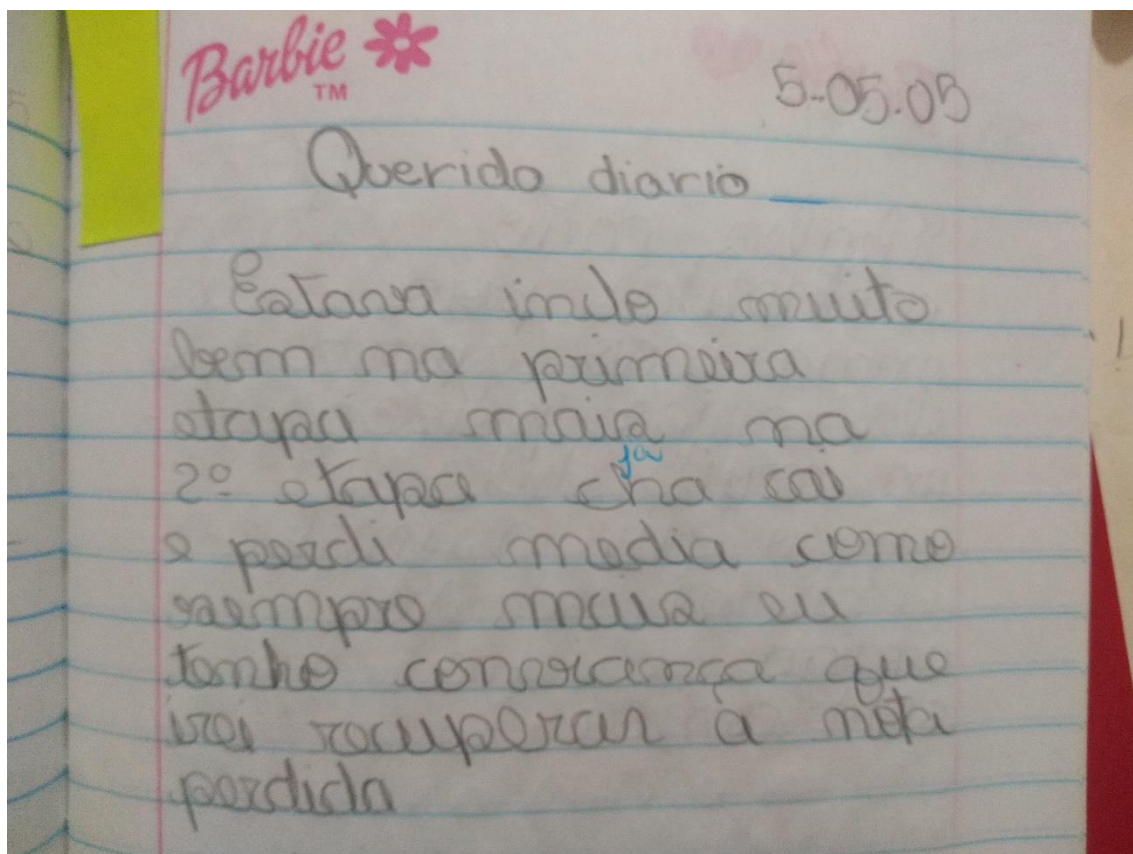 Barbie
TM
5-05.05
Querido diario
Estava indo muito
bem na primeira
etapa mais na
já
2º etapa cha cai
e perdi media como
sempre mais eu
tenho que
irei recuperar à nota
perdida